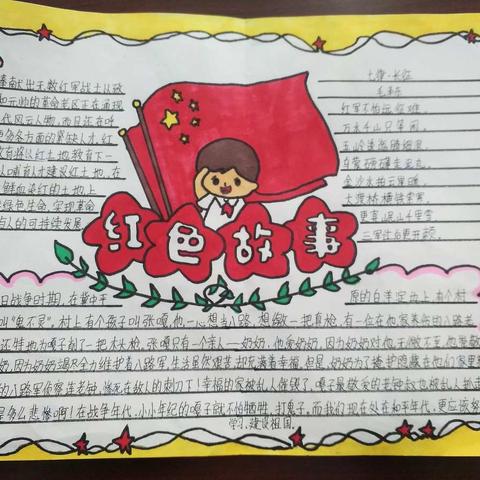 奉献出无数红军战士从政
和元帅的革命老区正在涌现
代风云人物,而且还在呼
更多各方面的紧缺人才,红
教育将以红土地教育下一
人哺育人才建设红土地,在
鲜血染红的土地上
绿色生命,实现革命
与人的可持续发展
七律·长征
毛泽东
红军不怕远征难,
万水千山只等闲。
五岭逶迤腾细浪,
乌蒙磅礴走泥丸。
金沙水拍云崖暖,
大渡桥横铁索寒。
更喜岷山千里雪
三军过后更开颜。
红色故事
日战争时期,在冀中平
原的白洋淀边上,有个村
叫"鬼不灵"。村上有个孩子叫张嘎,他一心想当八路,想缴一把真枪,有一位在他家养伤的八路老
还特地为嘎子削了一把木头枪,张嘎只有一个亲人——奶奶,他爱奶奶,因为奶奶对他无微不至,他爱敬
奶,因为奶奶竭尽全力维护着八路军,生活虽然艰苦却充满着幸福,但是,奶奶为了掩护隐藏在他们家里
的八路军侦察连老钟,惨死在敌人的刺刀下!幸福的家被乱人摧毁了,嘎子最敬爱的老钟叔也被乱人抓走
是多么悲惨啊!在战争年代,小小年纪的嘎子就不怕牺牲,打鬼子,而我们现在处在和平年代,更应该努
学习,建设祖国。